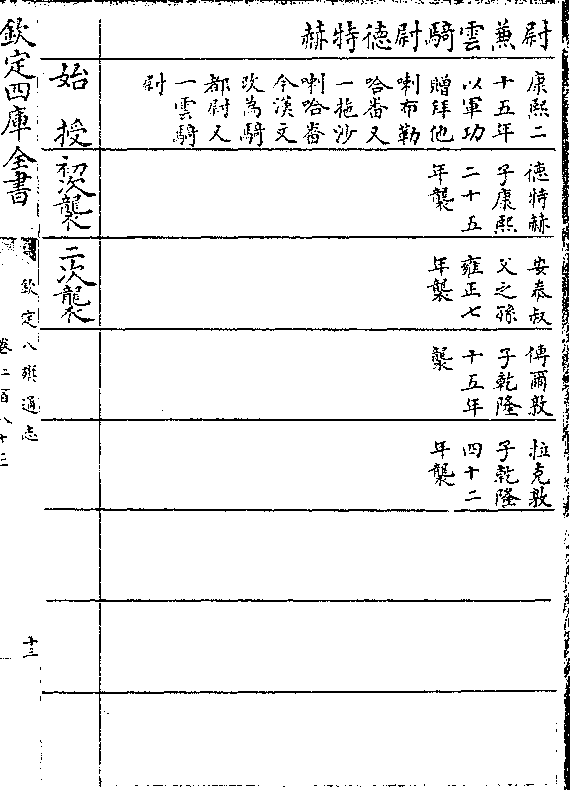 尉兼雲騎尉德特赫
康熙二
十五年
以軍功
贈拜他
喇布勒
哈番又
一拖沙
喇哈番
今漢文
改為騎
都尉又
一雲騎
尉
德特赫
子康熙
二十五
年襲
安泰叔
父之孫
雍正七
年襲
傅爾敦
子乾隆
十五年
襲
拉克敦
子乾隆
四十二
年襲
始授
初次襲
二次襲
欽定四庫全書
欽定八旗通志
卷二百八十三
十三